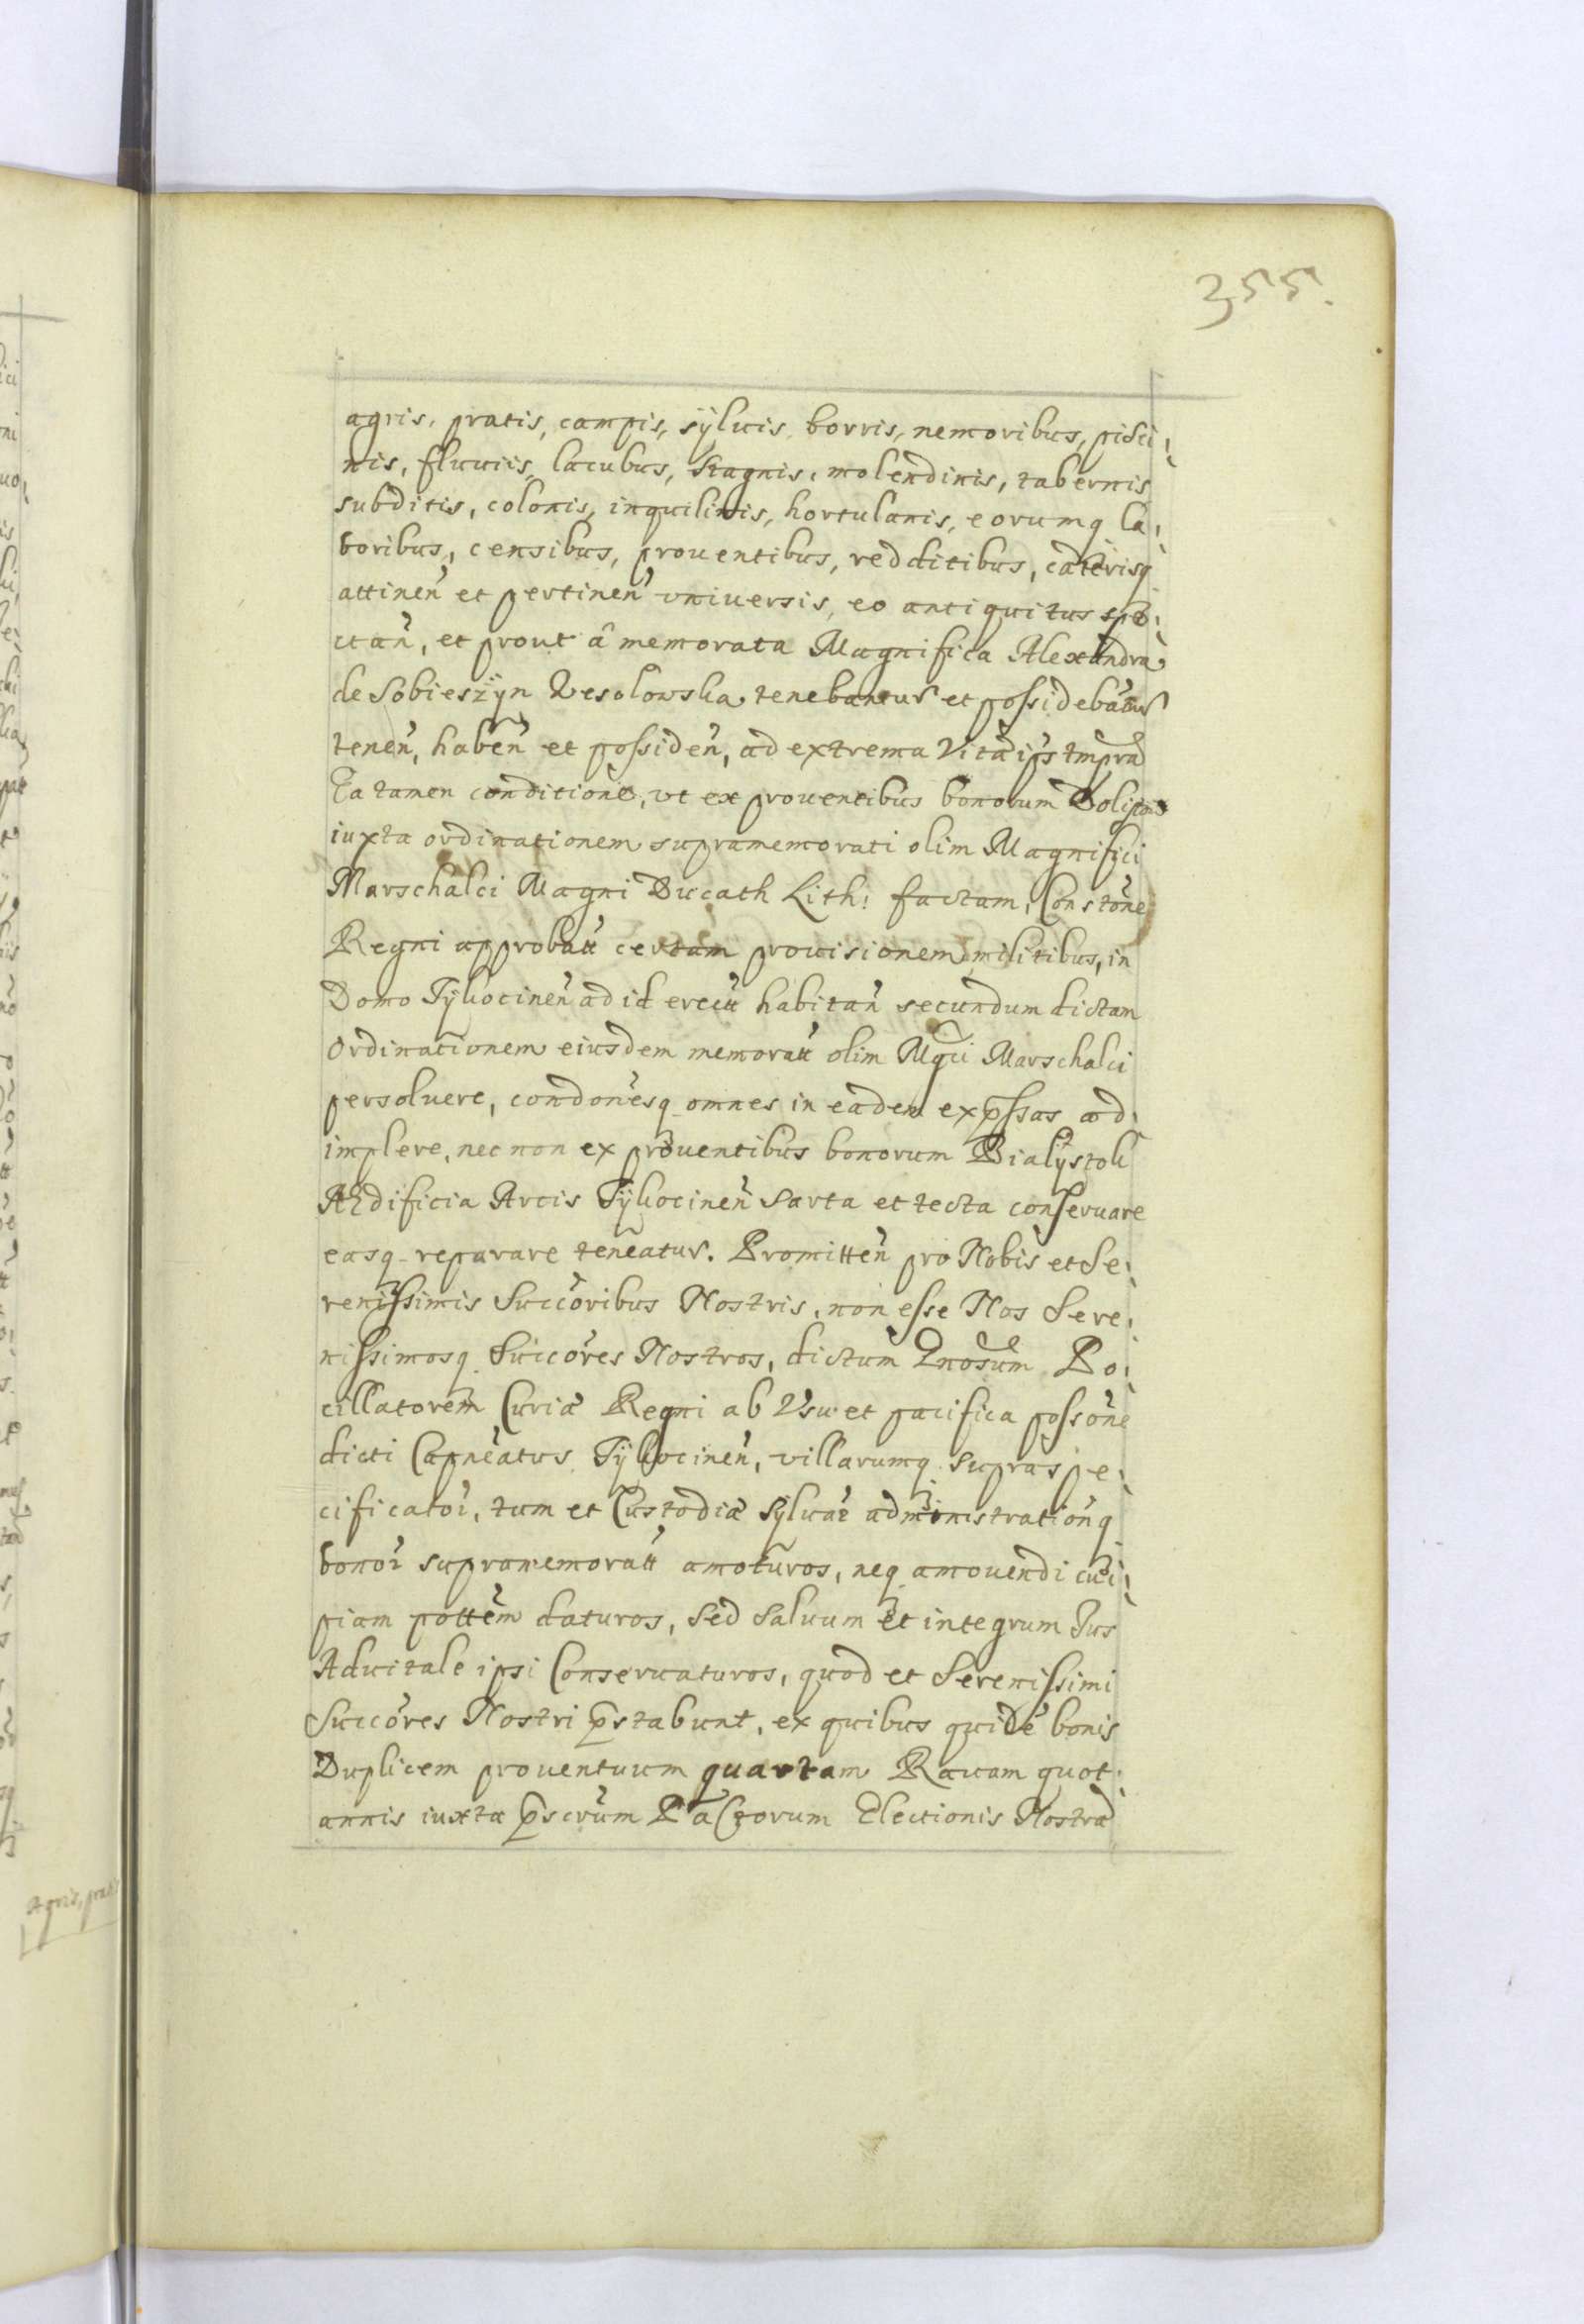 355.
agris, pratis, campis, sÿluis, borris, nemoribus, pisci,
nis, fluuiis, lacubus, Stagnis, molendinis, tabernis
subditis, colonis, inquilinis, hortulanis, eorumq la,
boribus, censibus, prouentibus, redditibus, cæterisq
attineñ et pertineñ vniuersis, eo antiquitus spe,
ctañ, et prout â memorata Magnifica Alexandra
de Sobieszÿn Wesolowska tenebantur et possidebātur
teneñ, habeñ et possideñ, ad extrema Vitæ ips tmpra
Ea tamen conditione, vt ex prouentibus bonorum
iuxta ordinationem supramemorati olim Magnifici
Marschalci Magni Ducath Lith: factam, Consto͠ne
Regni approbatt certam prouisionem militibus, in
Domo Tÿkocineñ ad id erectt habitañ secundum dictam
Ordinationem eiusdem memoratt olim Mgci Marschalci
persoluere, condo͠nesq omnes in eadem exp̄ssas ad,
implere, nec non ex prouentibus bonorum Bialÿstok
Ædificia Arcis Tÿkocineñ Sarta et tecta conseruare
easq reparare teneatur. Promitteñ pro Nobis et Se,
renissimis Succo͠ribus Nostris, non esse Nos Sere,
nissimosq Succo͠res Nostros, dictum Gnosum Po,
cillatorem Curiæ Regni ab Vsu et pacifica posso͠ne
dicti Capneatus Tÿkocineñ, villarumq supraspe,
cificator, tum et Custodiæ Sÿluar administrationq
bonor supramemoratt amoturos, neq amouendi cui,
piam pottem daturos, Sed Saluum et integrum Ius
Aduitale ipsi Conseruaturos, quod et Serenissimi
Succo͠res Nostri p̄stabunt, ex quibus quidē bonis
Duplicem prouentuum quartam Rauam quot,
annis iuxta p̄scrum Pactorum Electionis Nostræ
Agris, prat